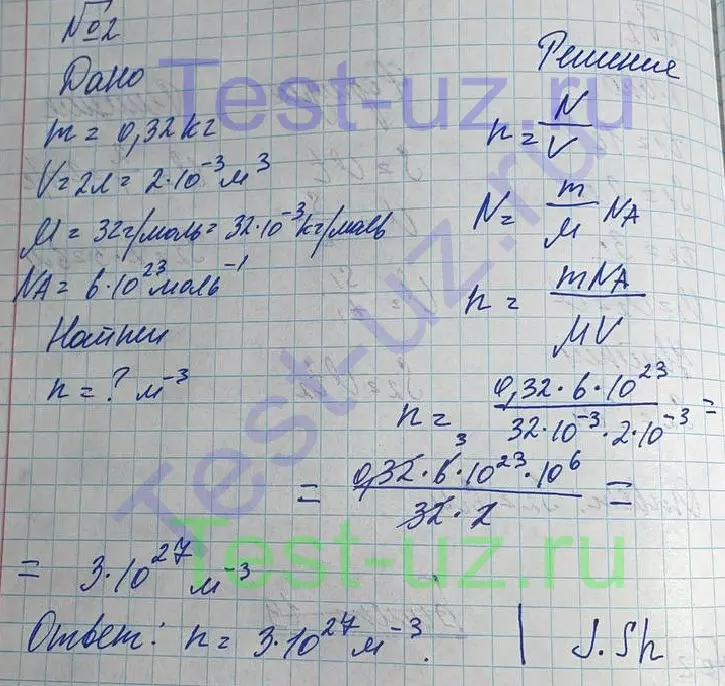 №2
Дано
m = 0,32 кг
V = 2л = 2·10⁻³ м³
M = 32г/моль = 32·10⁻³ кг/моль
NA = 6·10²³ моль⁻¹
Найти
n = ? м⁻³
Решение
n = N/V
N = m/M NA
n = mNA/MV
n = 0,32·6·10²³/32·10⁻³·2·10⁻³ =
= 0,32·6·10²³·10⁶/32·2 =
3
= 3·10²⁷ м⁻³
Ответ: n = 3·10²⁷ м⁻³. | J.Sh
Test-uz.ru
Test-uz.ru
Test-uz.ru